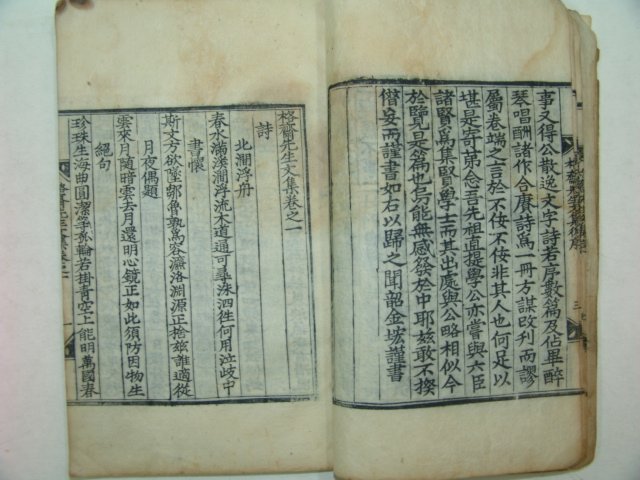 事又得公散逸文字詩若序數篇及佔畢醉
琴唱酬諸作合賡詩爲一冊方謀改刋而謬
屬卷端之言於不佞不佞非其人也何足以
堪是寄弟念吾先祖直提學公亦嘗與六臣
諸賢爲集賢學士而其出處與公略相似今
於臨是篇也烏能無感發於中耶玆敢不揆
僣妄而謹書如右以歸之聞韶金㙆謹書
格齋先生文集卷之一
詩
北澗浮舟
春水滿溪澗浮流木道通可尋洙泗徃何用泣歧中
書懷
斯文方欲墜鄒魯孰爲容濂洛淵源正捨玆誰適從
月夜偶題
雲來月隨暗雲去月還明心鏡正如此須防因物生
絕句
珍珠生海曲圓潔若掛青空上能明萬國春